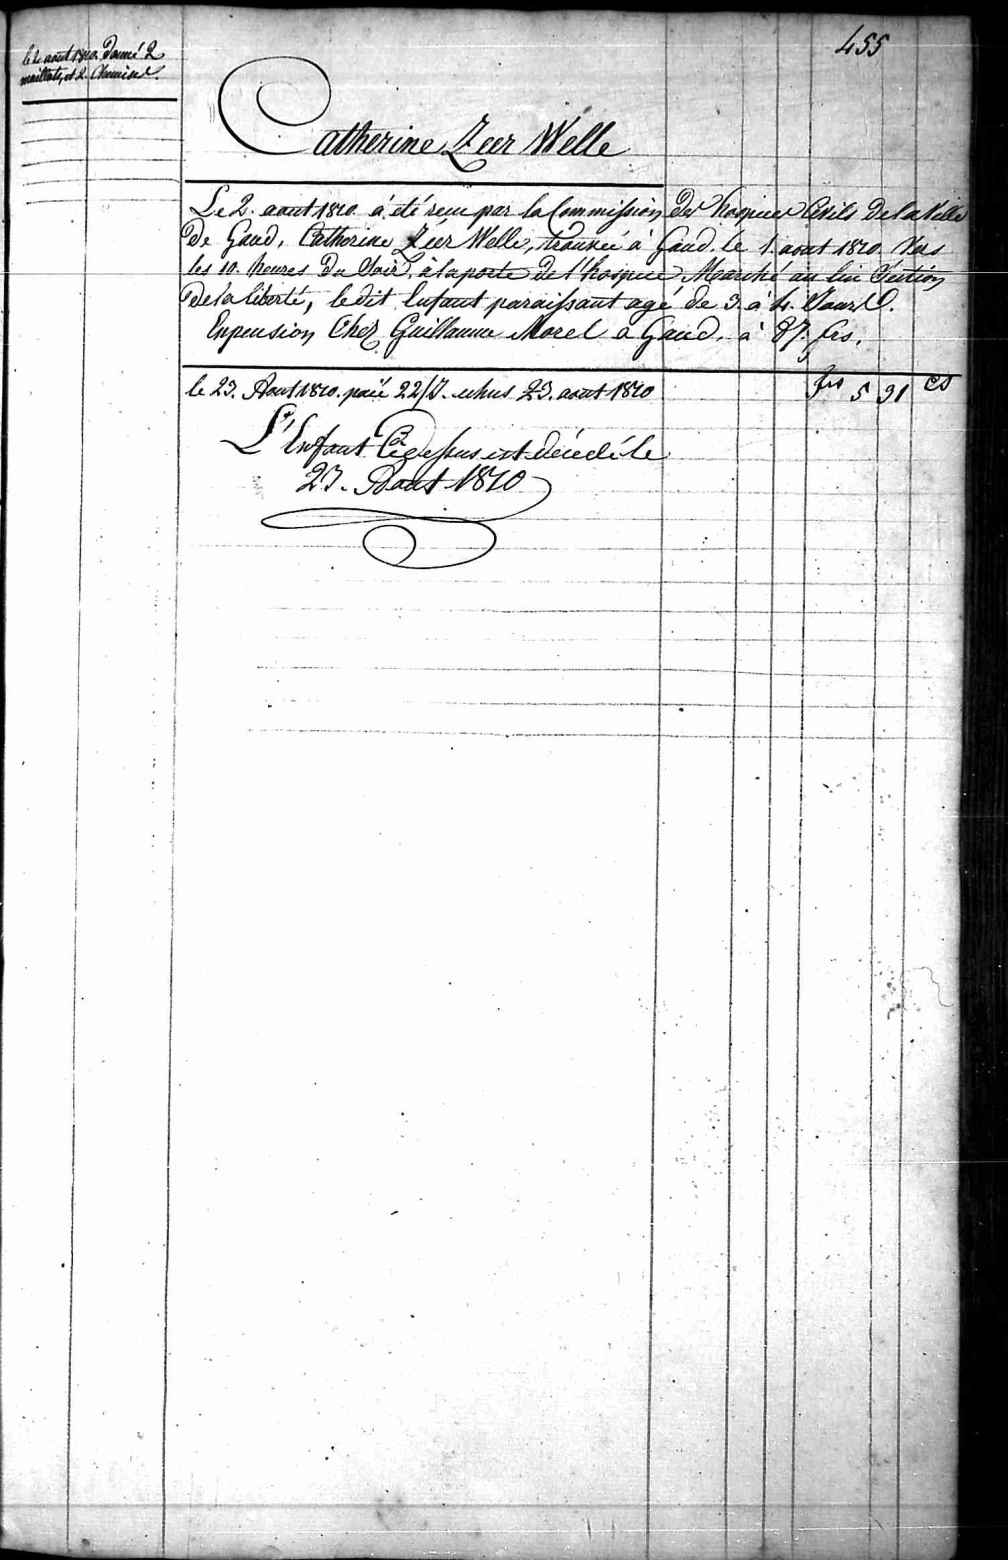 455
le 2 aout 1810. Donné 2
maillots, et 2. Chemises.
Catherine Zeer Welle
Le 2. aout 1810. a été reçu par la Commission des hospices Civils De la Ville
De Gand, Catherine Zéer Welle, trouvée à Gand. le 1. aout 1810. Vers
les 10. heures Du Soir, à la porte de l'hospice, Marché au lin Section
De la liberté, le dit Enfant paraissant agé de 3. à 4. Jours.
En pension Chez Guillaume Morel à Gand. à 87. frs.
le 23. Aout 1810. paié 22/J. echus 23. aout 1810 frs 5 31 cs
L'Enfant Cy dessus est décédé le
23. Aout 1810